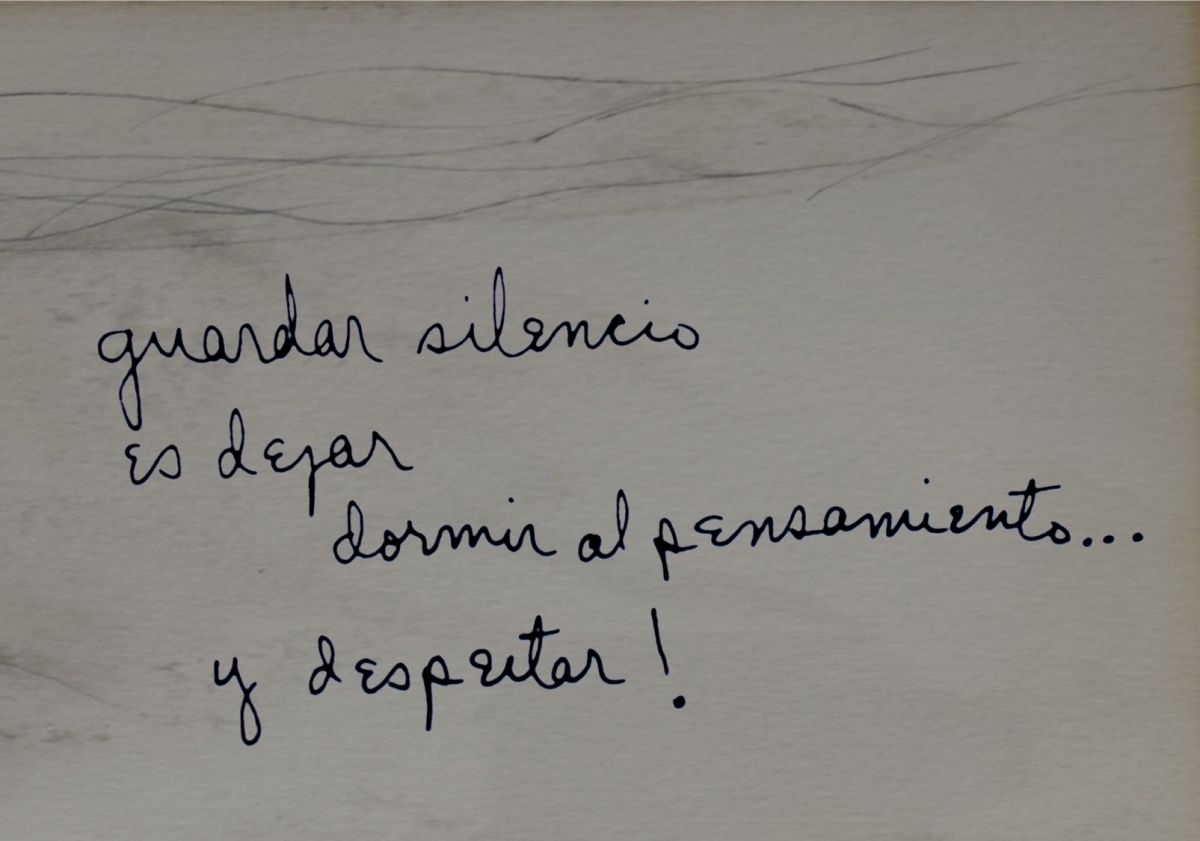 guardar silencio
es dejar
dormir al pensamiento...
y despertar!